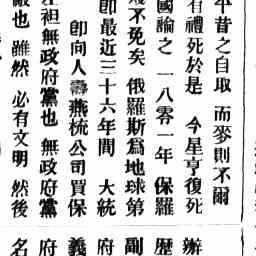 平昔之自取 而麥則不爾
有禮死於是 今星亨復死
國論之 一八零一年 保羅
不免矣 俄羅斯爲地球第
卽最近三十六年間 大統
卽向人壽燕梳公司買保
左袒無政府黨也 無政府黨
也 雖然 必有文明 然後
辦
歷
副
府
義
府
名